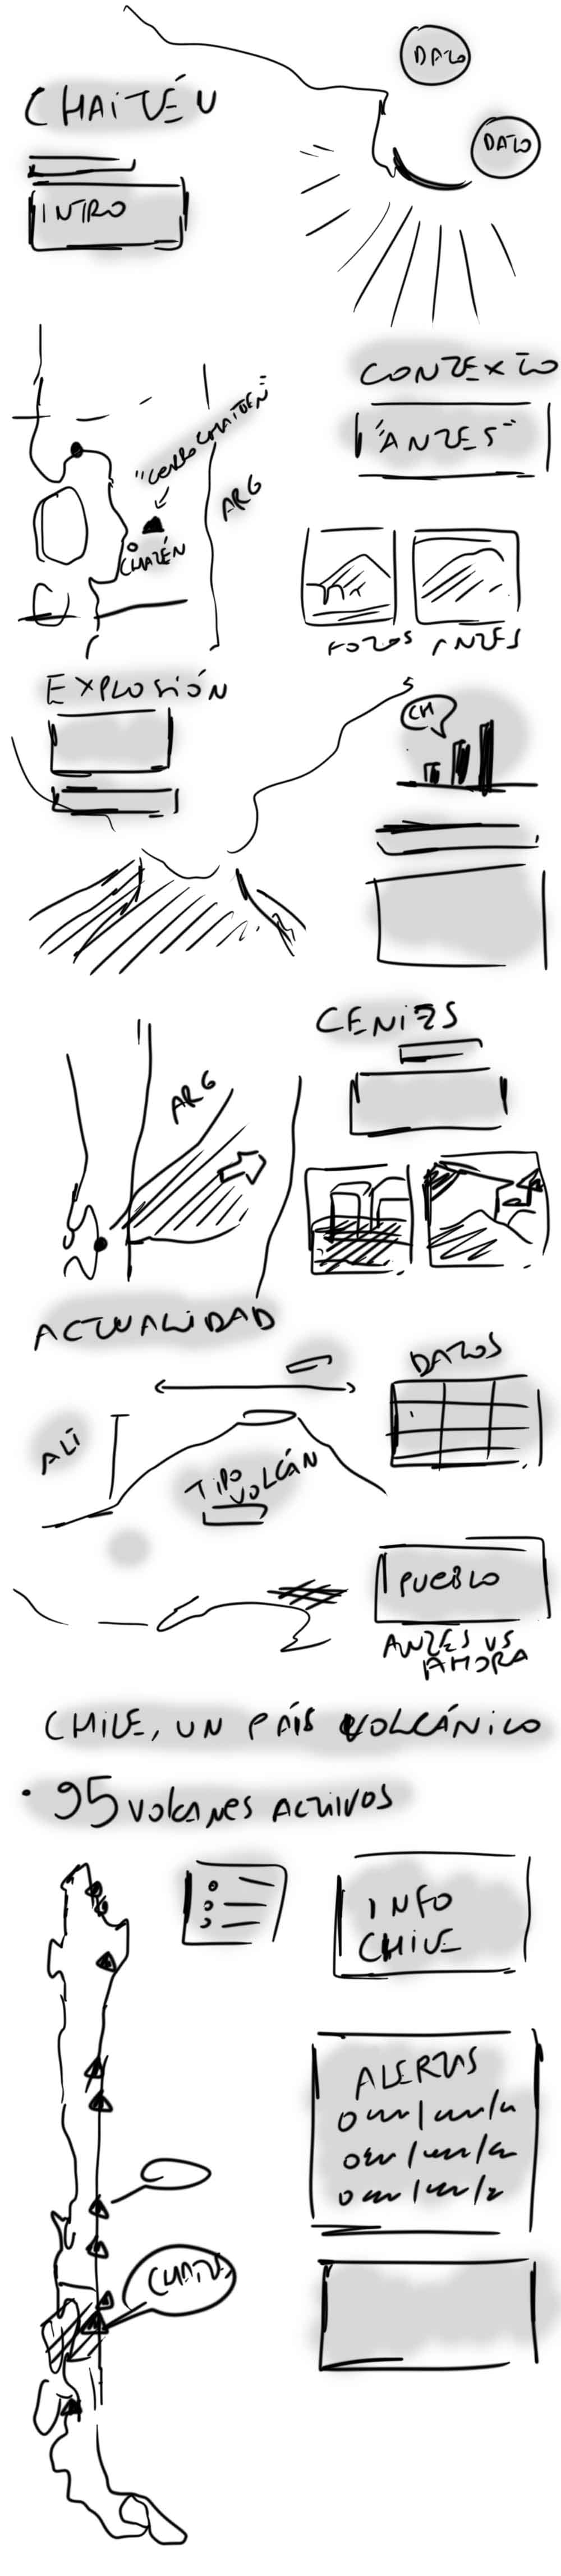 CHAITÉN
DATO
DATO
INTRO
CONTEXTO
"ANTES"
"CERRO CHAITEN"
ARG
CHAITÉN
FOTOS ANTES
EXPLOSIÓN
CH
CENIZAS
ARG
ACTUALIDAD
DATOS
ALT
TIPO
VOLCÁN
PUEBLO
ANTES VS
AHORA
CHILE, UN PAÍS VOLCÁNICO
• 95 VOLCANES ACTIVOS
INFO
CHILE
ALERTAS
CHAITÉN